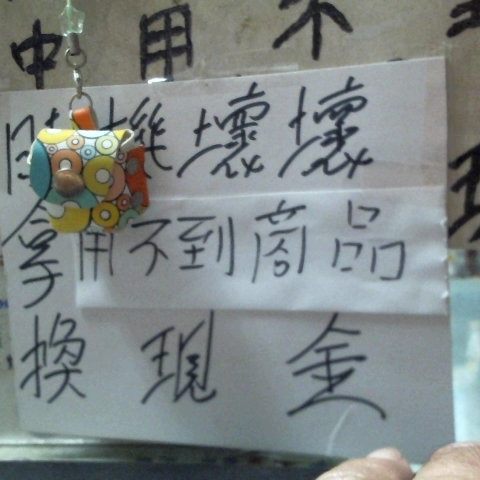 中用不
機壞壞
拿用不到商品
換現金